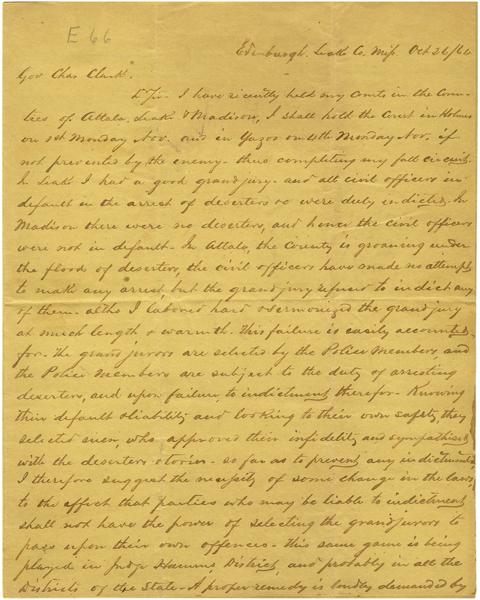 E 66
Edinburgh, Leake Co, Miss Oct 26/64
Gov Chas Clark.
D Sir- I have recently held my Courts in the Coun-
ties of Attala, Leake & Madison, I shall hold the Court in Holmes
on 1st Monday Nov. and in Yazoo on 4th Monday Nov. if
not prevented by the enemy- thus completing my fall circuit.
In Leake I had a good grand jury- and all civil officers in
default in the arrest of deserters &c were duly indicted. In
Madison there were no deserters, and hence the civil officers
were not in default- In Attala, the County is groaning under
the flood of deserters, the civil officers have made no attempt
to make any arrest, but the grand jury refused to indict any
of them- altho I labored hard & sermonized the grand jury
at much length & warmth- This failure is easily accounted
for- The grand jurors are selected by the Police Members, and
the Police Members are subject to the duty of arresting
deserters, and upon failure, to indictment therefor- Knowing
their default & liability and looking to their own safety, they
selected men, who approved their infidelity and sympathised
with the deserters & tories- so far as to prevent any indictments
I therefore suggest the necessity of some change in the laws,
to the effect that parties who may be liable to indictment
shall not have the power of selecting the grand jurors to
pass upon their own offences- This same game is being
played in Judge District, and probably in all the
Districts of the State- A proper remedy is loudly demanded by